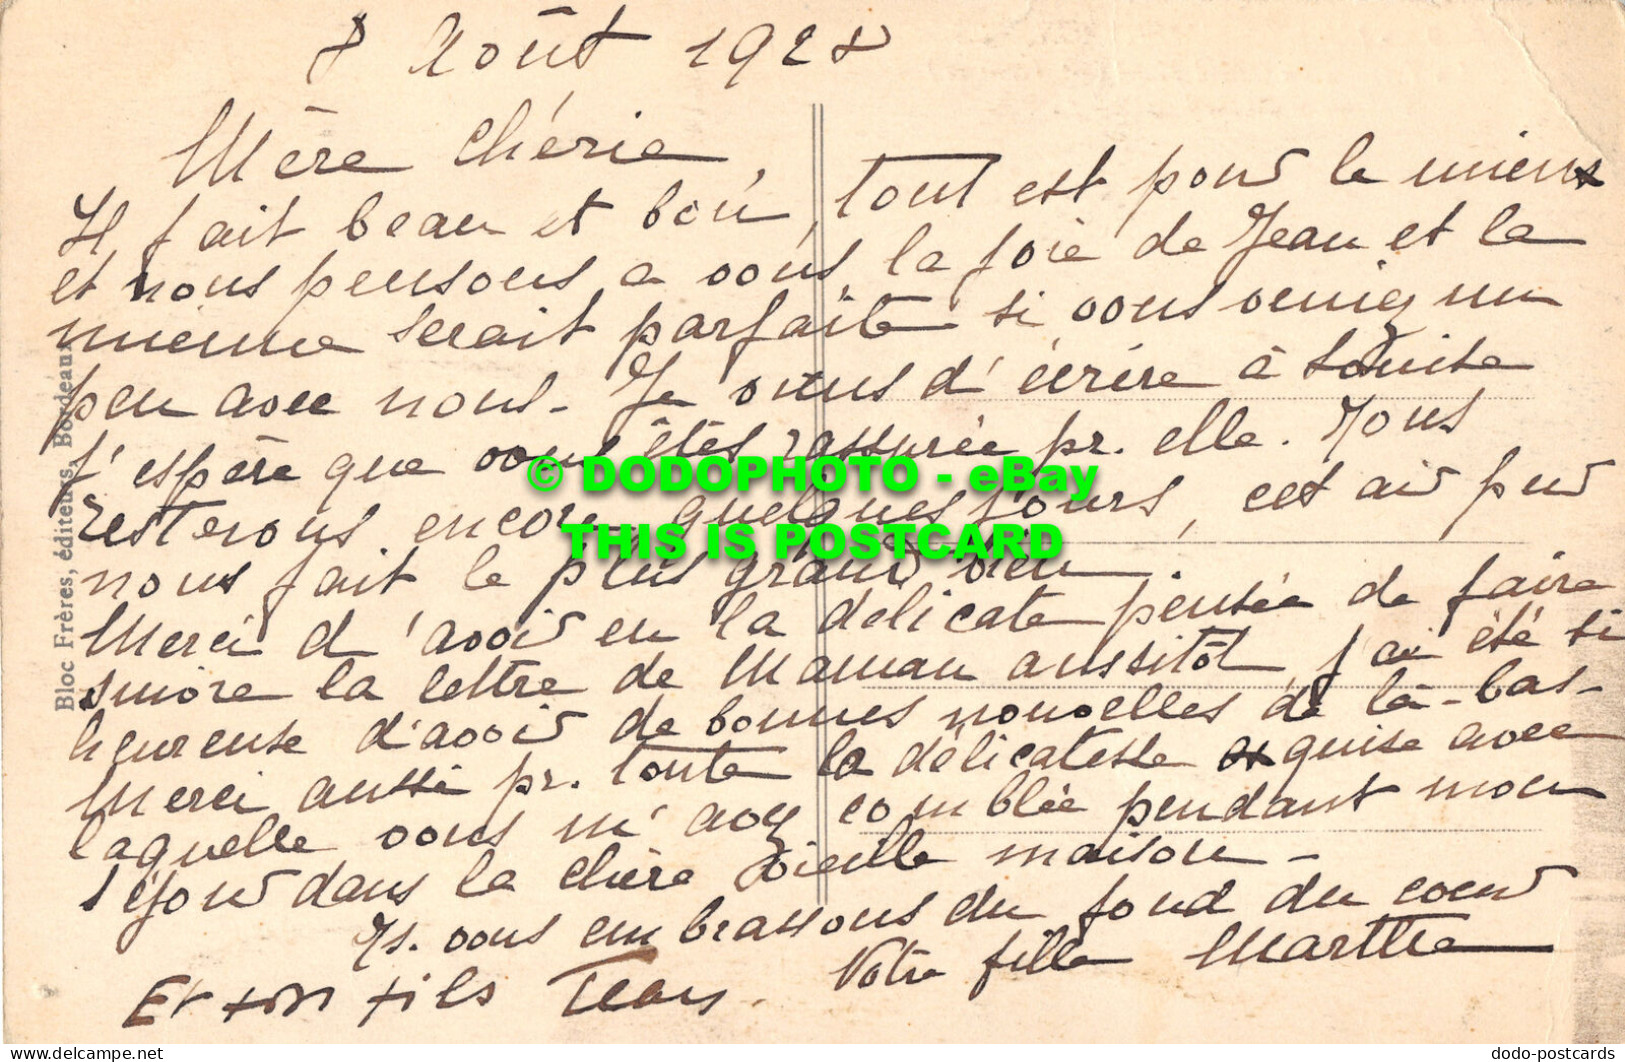 8 Août 1928
Mère Chérie,
Il fait beau et bon, tout est pour le mieux
et nous pensons a vous, la joie de Jean et la
mienne serait parfaite si vous veniez un
peu avec nous. Je viens d'écrire à Louise
j'espère que vous êtes rassurée pr. elle. Nous
resterons encore quelques jours, cet air pur
nous fait le plus grand bien.
Merci d'avoir eu la délicate pensée de faire
suivre la lettre de Maman aussitôt, j'ai été si
heureuse d'avoir de bonnes nouvelles de là-bas-
Merci aussi pr. toute la délicatesse exquise avec
laquelle vous m'avez comblée pendant mon
séjour dans la chère vieille maison-
Ns. vous embrassons du fond du coeur
Votre fille Marthe
Et ton fils Jean.
Bloc Frères, éditeurs, Bordeaux
© DODOPHOTO - eBay
THIS IS POSTCARD
delcampe.net
dodo-postcards